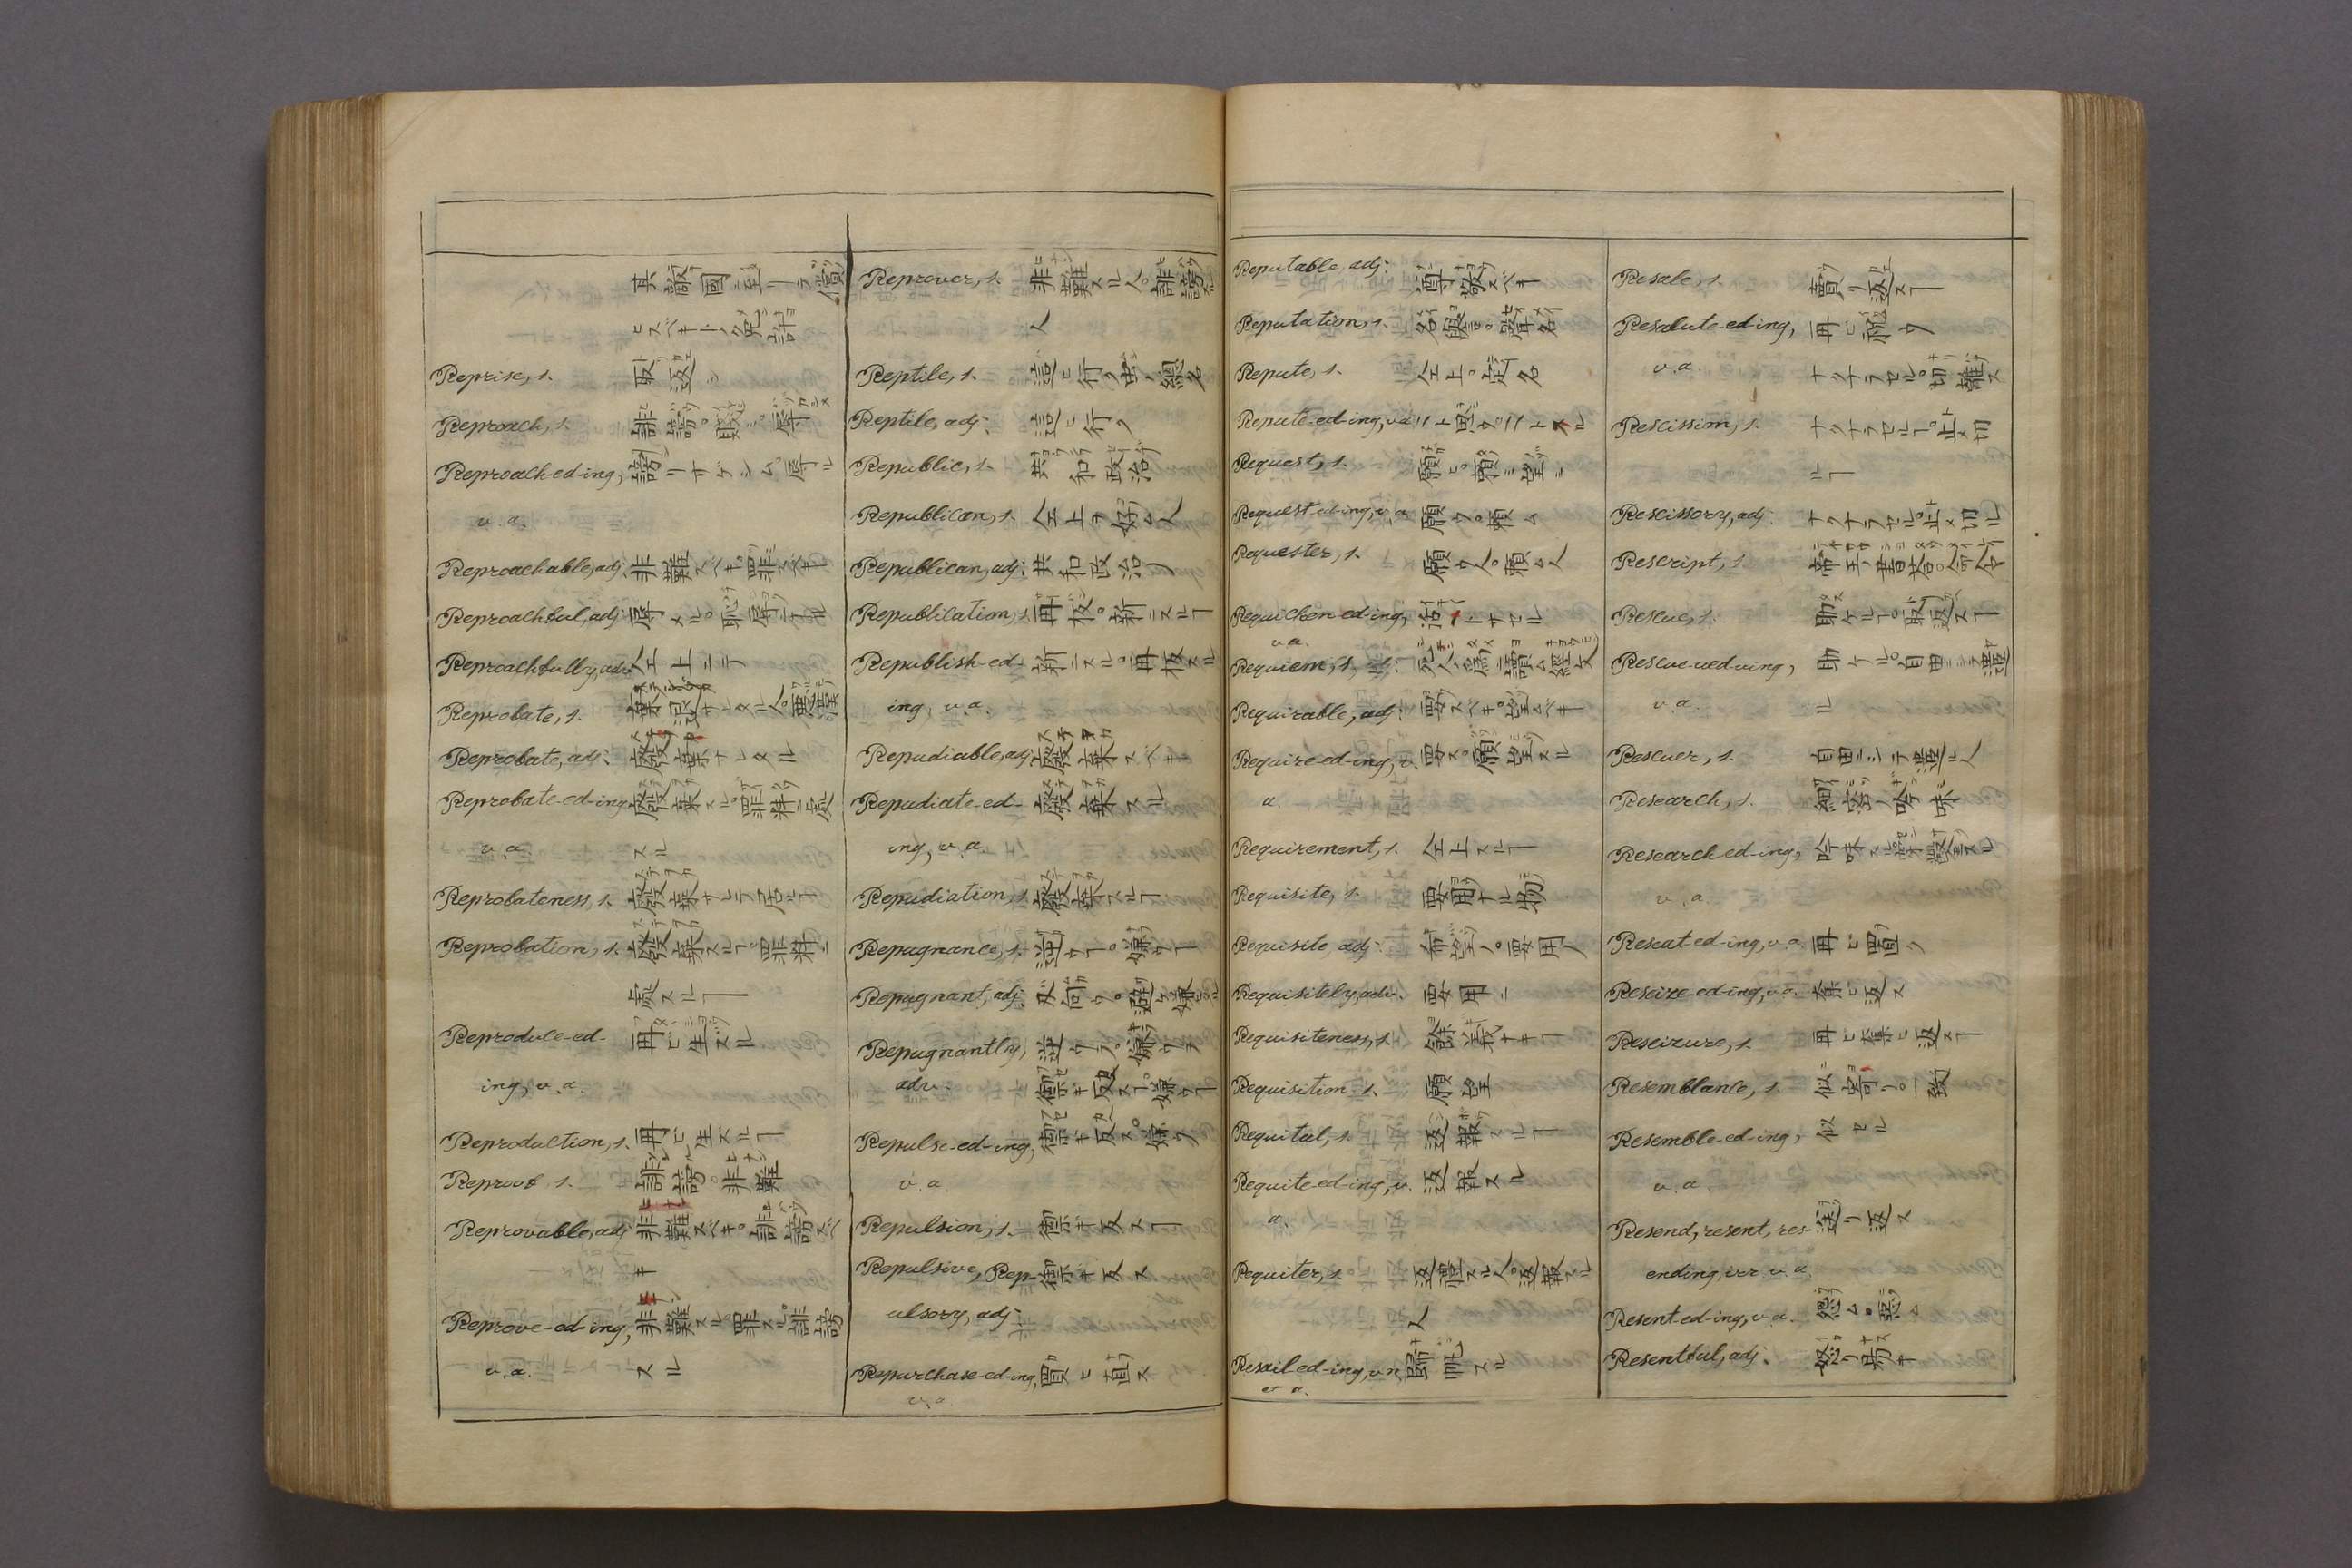 其敵國ニ至リテ償
ヒスベキトノ免許
Reprise, s. 取返シ
Reproach, s. 誹謗。恥。辱
Reproach-ed-ing, 謗リサゲシム。辱ル
v. a.
Reproachable, adj. 非難スベキ。罪スベキ
Reproachful, adj.
Reproachfully, adv. 仝上ニテ
Reprobate, s.
Reprobate, adj. 廢棄サレタル
Reprobate-ed-ing 廢棄スル。罪科ニ處
v. a. スル
Reprobateness, s. 廢棄サレテ居ルヿ
Reprobation, s. 廢棄スルヿ。罪科ニ
處スルヿ
Reproduce-ed- 再ビ生ズル
ing, v. a.
Reproduction, s. 再ビ生ズルヿ
Reproof s. 誹謗。非難
Reprovable, adj 非難スベキ。誹謗スベ
キ
Reprove-ed-ing, 非難スル。罪スル。誹謗
v. a. スル
Reprover, s. 非難スル人。誹謗スル
人
Reptile, s. 這ヒ行ク虫ノ總名
Reptile, adj. 這ヒ行ク
Republic, s. 共和政治
Republican, s. 仝上ヲ好ム人
Republican, adj. 共和政治ノ
Republication, s. 再板。新ニスルヿ
Republish-ed- 新ニスル。再板スル
ing, v. a.
Repudiable, adj 廢棄スベキ
Repudiate-ed- 廢棄スル
ing, v. a.
Repudiation, s. 廢棄スルヿ
Repugnance, s. 逆ウヿ。嫌ウヿ
Repugnant, adj.
Repugnantly, 逆ウテ。嫌ウテ
adv. 禦ギ反スヿ。嫌ウヿ
Repulse-ed-ing, 禦ギ反ス。嫌ウ
v. a.
Repulsion, s. 禦ギ反スヿ
Repulsive, Rep- 禦ギ反ス
ulsory, adj.
Repurchase-ed-ing, 買ヒ直ス
v. a.
Reputable, adj. 尊敬スベキ
Reputation, s. 名聲。譽名
Repute, s. 仝上。
Repute-ed-ing, v a ニト思ウ。ニトスル
Request, s. 願ヒ。頼ミ。望ミ
Request-ed-ing, v. a 願ウ。頼ム
Requester, s. 願ウ人。頼ム人
Requicken-ed-ing, 活カサセル
v a.
Requiem, s. 死人ノ爲ニ讀ム經文
Requirable, adj. 要スベキ。望ムベキ
Require-ed-ing, v. 要ス。願望スル
a.
Requirement, s. 仝上スルヿ
Requisite, s. 要用ナル物
Requisite adj. 希望ノ。要用ノ
Requisitely, adv. 要用ニ
Requisiteness, s. 餘義ナキヿ
Requisition. s. 願望
Requital, s. 返報スルヿ
Requite-ed-ing, v. 返報スル
a.
Requiter, s. 返禮スル人。返報スル
人
Resail-ed-ing, v n 歸帆スル
v a.
Resale, s. 賣リ返スヿ
Resalute-ed-ing, 再ビ祝ウ
v. a. ナクナラセル。切リ離ス
Rescission, s. ナクナラセルヿ。止メ切
ルヿ
Rescissory, adj. ナクナラセル。止メ切ル
Rescript, s. 帝王ノ書答。命令
Rescue, s. 助ケルヿ。取返スヿ
Rescue-ued-uing, 助ケル。自由ニシテ遣
v. a. ル
Rescuer, s. 自由ニシテ遣ル人
Research, s. 細密ノ吟味
Research-ed-ing, 吟味スル。穿鑿スル
v. a.
Reseat-ed-ing, v. a. 再ビ置ク
Reseize-ed-ing, v. a. 奪ヒ返ス
Reseizure, s. 再ビ奪ヒ返スヿ
Resemblance, s. 似寄リ。一致
Resemble-ed-ing, 似セル
v. a.
Resend, resent, res- 送リ返ス
ending, irr. v. a.
Resent-ed-ing, v. a.
Resentful, adj.